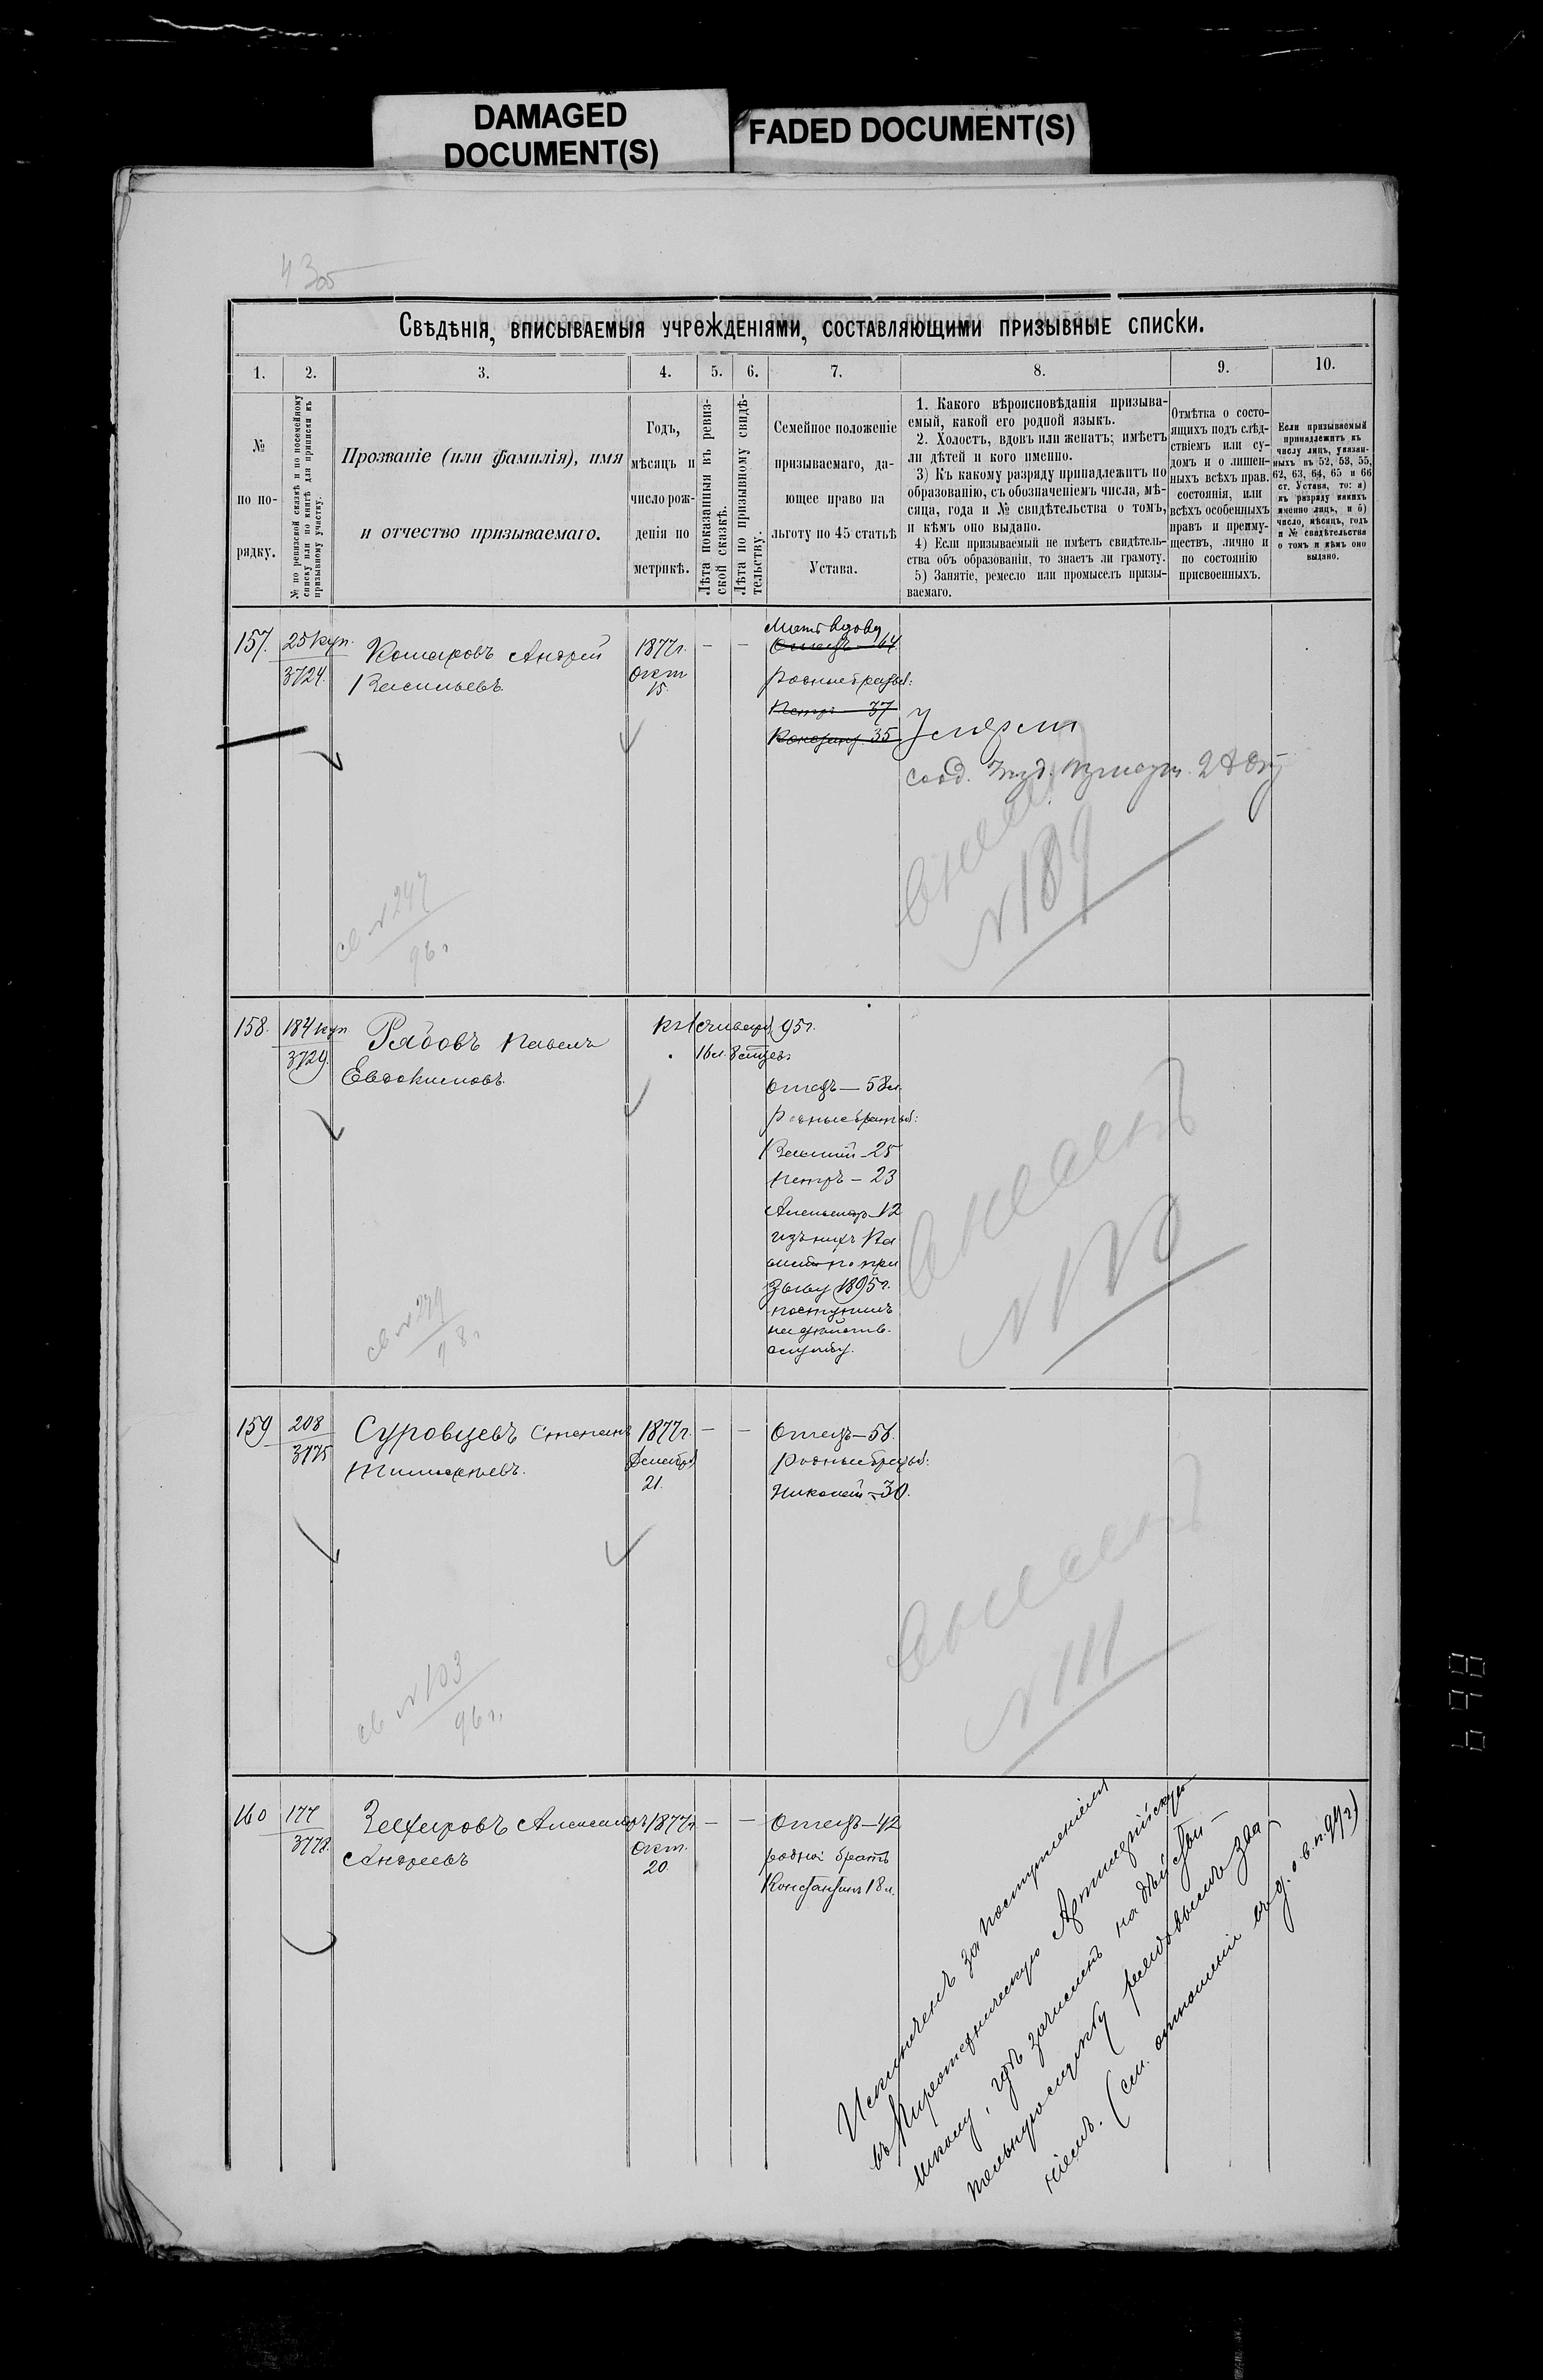 DAMAGED
DOCUMENT(S)
FADED DOCUMENT(S)
Свѣдѣнія, вписываемыя учрежденіями, составляющими призывные списки.
1.
2.
3.
4.
5.
6.
7.
8.
9.
10.
№
по по-
рядку.
№ по ревизской сказкѣ и по посемейному
списку или по книгѣ для приписки къ
призывному участку.
Прозваніе (или фамилія), имя
и отчество призываемаго.
Годъ,
мѣсяцъ и
число рож-
денія по
метрикѣ.
Лѣта показанныя въ ревиз-
ской сказкѣ.
Лѣта по призывному свидѣ-
тельству.
Семейное положеніе
призываемаго, да-
ющее право на
льготу по 45 статьѣ
Устава.
1. Какого вѣроисновѣданія призыва-
емый, какой его родной языкъ.
2. Холостъ, вдовъ или женатъ; имѣетъ
ли дѣтей и кого именно.
3) Къ какому разряду принадлежитъ по
образованію, съ обозначеніемъ числа, мѣ-
сяца, года и № свидѣтельства о томъ,
и кѣмъ оно выдано.
4) Если призываемый не имѣетъ свидѣтель-
ства объ образованіи, то знаетъ ли грамоту.
5) Занятіе, ремесло или промыселъ призы-
ваемаго.
Отмѣтка о состо-
ящихъ подъ слѣд-
ствіемъ или су-
домъ и о лишен-
ныхъ всѣхъ прав.
состоянія, или
всѣхъ особенныхъ
правъ и преиму-
ществъ, лично и
по состоянію
присвоенныхъ.
Если призываемый
принадлежитъ къ
числу лицъ, указан-
ныхъ въ 52, 53, 55,
62, 63, 64, 65 и 66
ст. Устава, то: а)
къ разряду какихъ
именно лицъ, и б)
число, мѣсяцъ, годъ
и № свидѣтельства
о томъ и кѣмъ оно
выдано.
157.
25 куп.
3724.
Комаровъ Андрей
Васильевъ
1877г.
Окт
15.
Мать вдова
Отецъ — 64
родные братья:
Петръ — 37
35
Умерли
св №247
96 г
№189
158.
184 куп
3729.
Рябовъ Павелъ
Евдокимовъ.
къ 1 Января 95г.
16 л. 8 мѣсяцев
Отецъ — 58 л.
Родные братья:
Василій — 25
Петръ — 23
Александр — 12
изъ нихъ Ва
силій по при
зыву 1895г.
поступилъ
на дѣйств.
службу.
159
208
3175
Суровцевъ Степанъ
Тимофеевъ.
1877г.
Декабря
21.
Отецъ — 56.
Родные братья:
Николай — 30.
св №103
96 г.
№111
160
177
3778.
Зефировъ Александръ
Андреевъ
1877г
Окт.
20
Отецъ — 42
родной братъ
Константинъ 18 л.
Исключенъ за поступленіемъ
въ Пиротехническую Артиллерійскую
школу, гдѣ зачисленъ на дѣйстви-
тельную службу рядовымъ зва-
ніемъ. (см. отношеніе
698